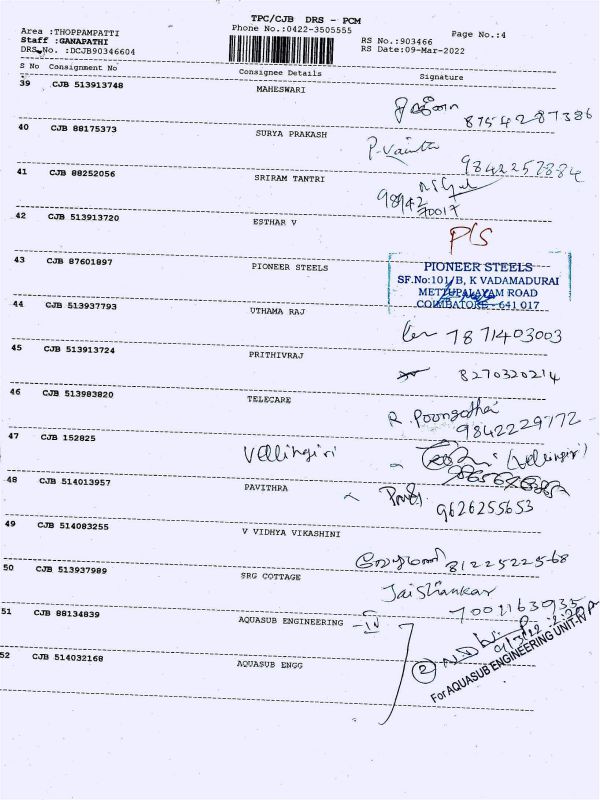 TPC/CJB DRS - PCM
Area :THOPPAMPATTI
Phone No.:0422-3505555
Page No.:4
Staff :GANAPATHI
RS No.:903466
DRS No. :DCJB90346604
RS Date:09-Mar-2022
S No Consignment No Consignee Details Signature
39 CJB 513913748 MAHESWARI
8754287386
40 CJB 88175373 SURYA PRAKASH
P.Vanitha
9842252884
41 CJB 88252056 SRIRAM TANTRI
98942
70017
42 CJB 513913720 ESTHAR V
P/S
43 CJB 87601897 PIONEER STEELS
PIONEER STEELS
SF.No:101/B, K VADAMADURAI
METTUPALAYAM ROAD
COIMBATORE - 641 017
44 CJB 513937793 UTHAMA RAJ
7871403003
45 CJB 513913724 PRITHIVRAJ
8270320214
46 CJB 513983820 TELECARE
R. Poongothai
9842229772
47 CJB 152825 Vellingiri
(Vellingiri)
48 CJB 514013957 PAVITHRA
9626255653
49 CJB 514083255 V VIDHYA VIKASHINI
8122522568
50 CJB 513937989 SRG COTTAGE
Jaishankar
7002163935
51 CJB 88134839 AQUASUB ENGINEERING -IV
52 CJB 514032168 AQUASUB ENGG
2
For AQUASUB ENGINEERING UNIT-IV